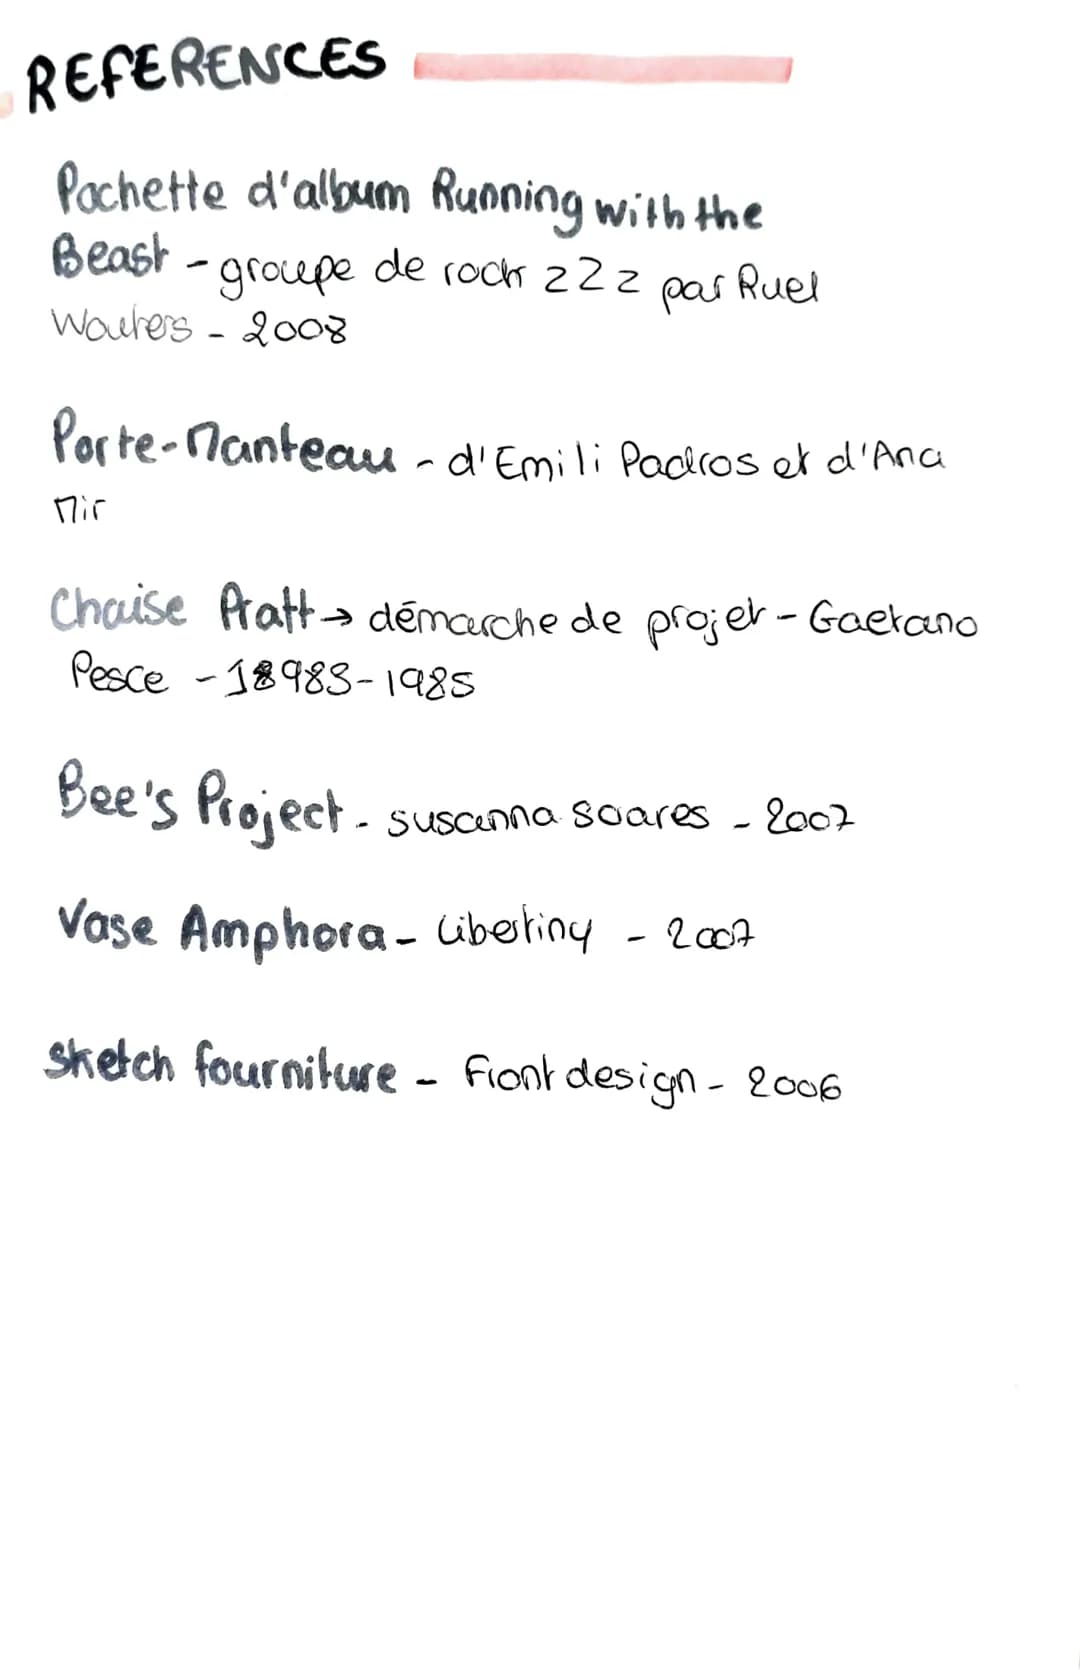 REFERENCES
Pochette d'album Running with the
Beast - groupe de rock zZz par Ruel
Wouters - 2008
Porte-Manteau - d'Emili Padros et d'Ana
Mir
Chaise Pratt → démarche de projet - Gaetano
Pesce - 18983-1985
Bee's Project - susanna soares - 2007
Vase Amphora - Libertiny - 2007
Sketch fourniture - Front design - 2006